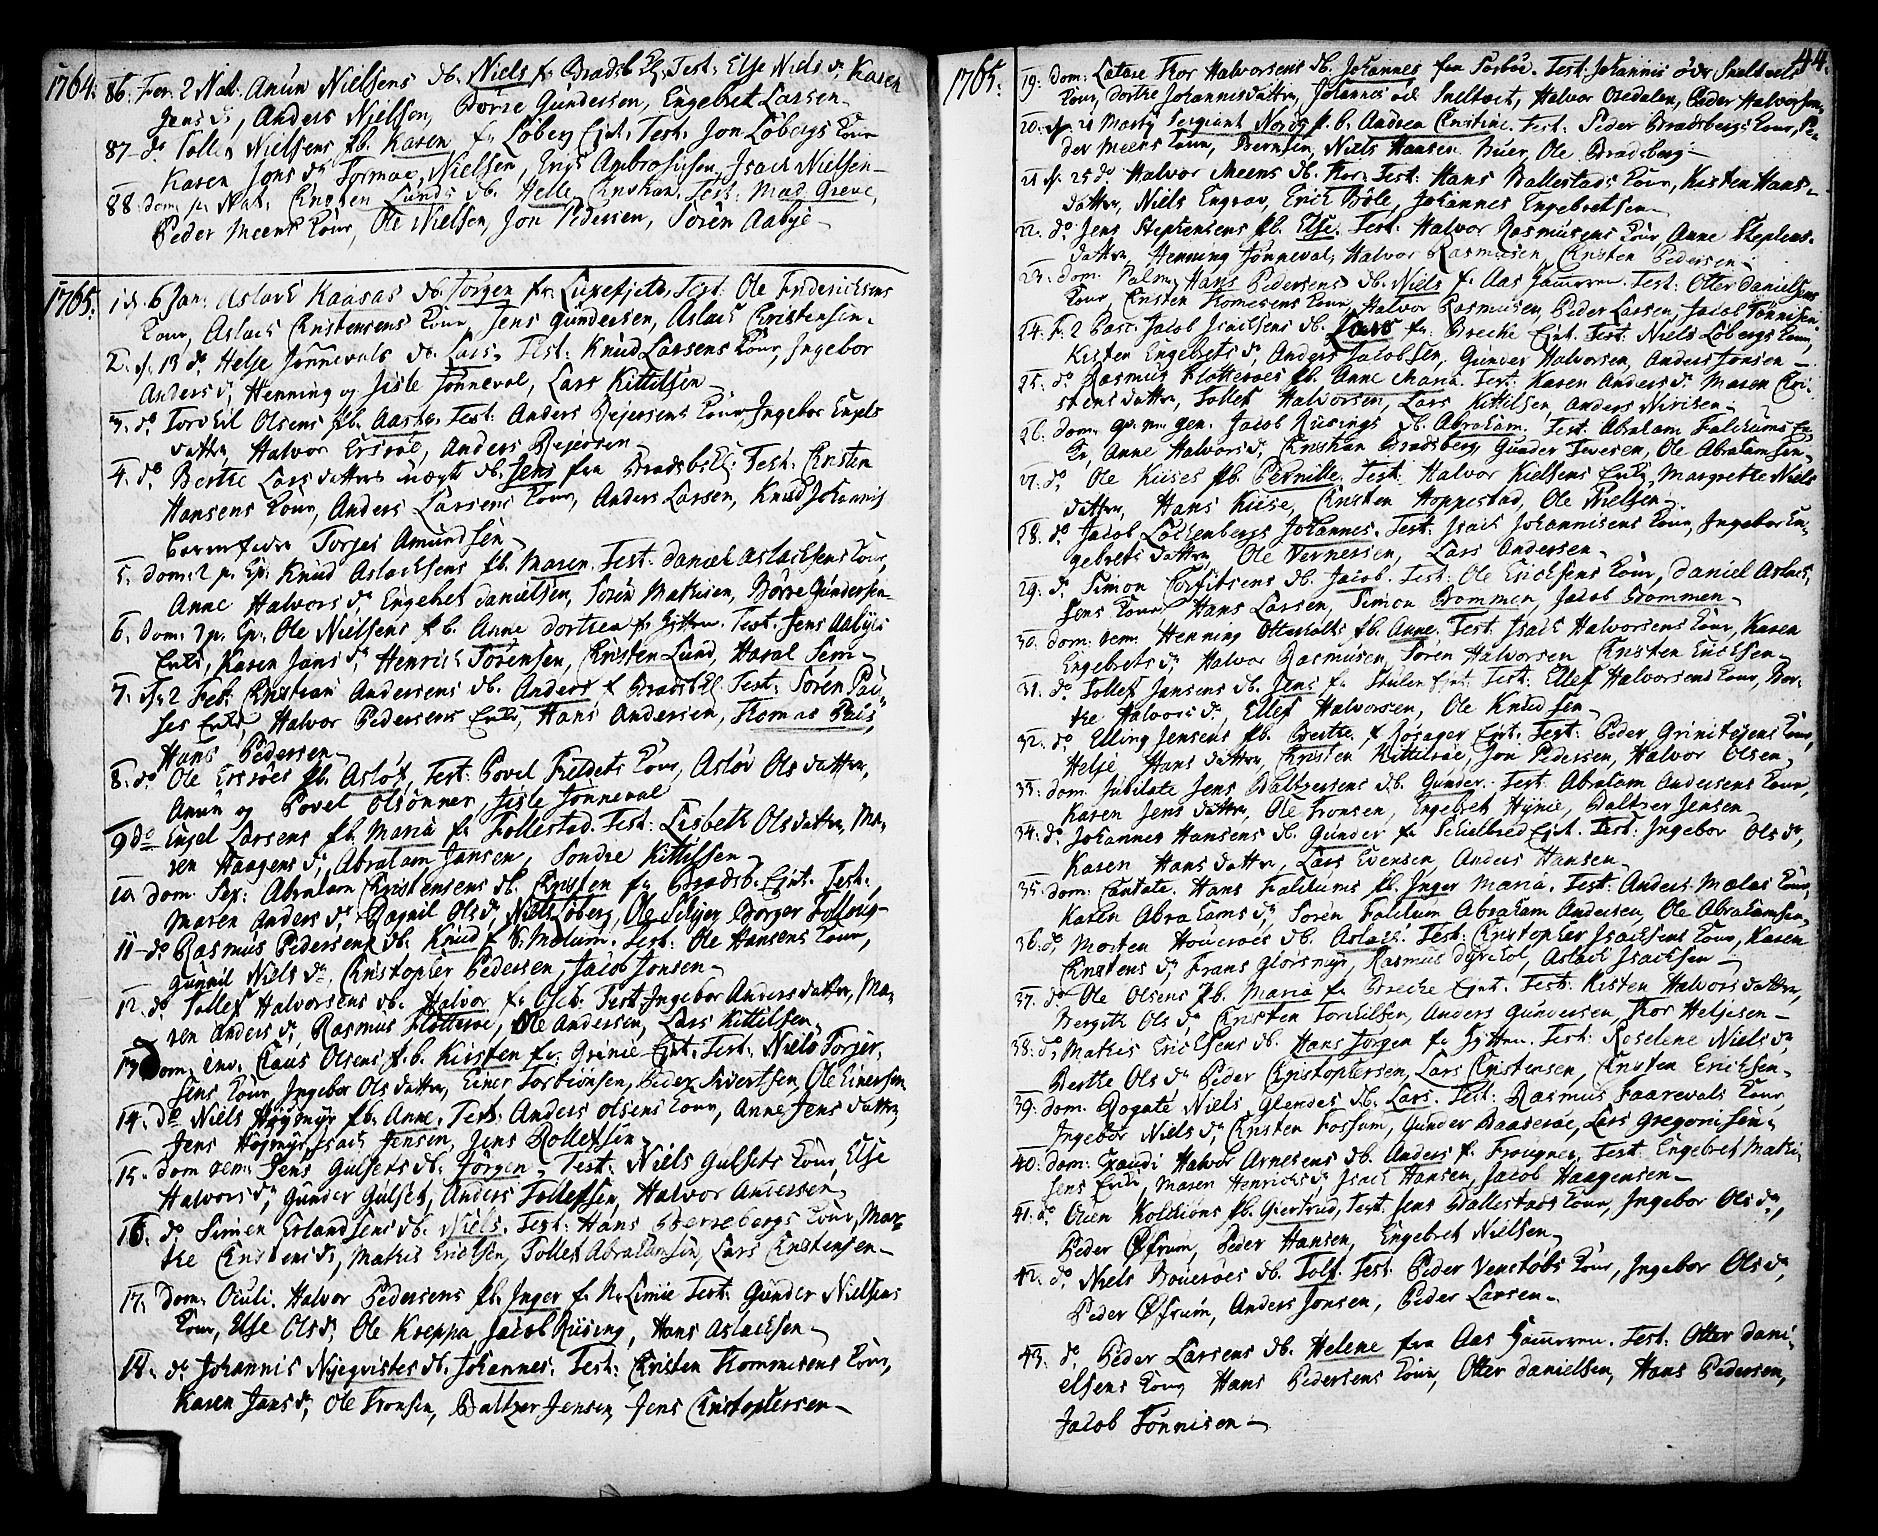 1764. 86. Fer. 2 Nat. Amun Nielsens db. Niels fr. Bradsb. Test: Else Niels d. Karen
Jens d., Anders Nielsen, Børre Gundersen, Engebret Larsen
87 do Tolle Nielsens fb. Karen fr. Løberg Ejnt. Test: Jon Løbergs Kone
Karen Jons d. Nielsen, Ambrosiusen, Isach Nielsen
88. dom. p. Nat. Cristen Lunds db. Helle Christian. Test: Mad. Greve,
Peder Meens Kone, Ole Nielsen, Jon Pedersen, Søren Aabye
1765. 1. d. 6 Jan: Aslach Kaasas db. Jørgen fr. Luxefjeld, Test: Ole Fredericksens
Kone, Aslach Christensens Kone, Jens Gundersen, Aslach Christensen.
2. d. 13 do Helje Jønnevals db. Lars. Test: Knud Larsens Kone, Ingebor
Anders d. Henning og Jisle Jønneval, Lars Kittilsen
3. do Torkil Olsens fb. Aashe. Test: Anders Rejersens Kone, Ingebor Engels
datter, Halvor Ersvol, Anders Rejersen
4. do Berthe Larsdatters uægte db. Jens fra Bradsb. Test: Cristen
Hansens Kone, Anders Larsens Kone, Anders Larsen, Knud Johannis
barnefader Torjes Amundsen
5. dom: 2 p. Ep: Knud Aslachsens fb. Maren. Test: Daniel Aslachsens Kone,
Anne Halvors d. Engebret Danielsen, Søren Mathisen, Børre Gundersen
6. dom. 3 p. Ep. Ole Nielsens fb. Anne Dorthea fr. Gitter. Test. Jens Aabyes
Enke, Karen Jans d. Henrich Sørensen, Cristen Lund, Haral Sem
7. d. 2 Feb. Cristian Andersens db. Anders f. Bradsb. Test: Søren Pau
ses Enke, Halvor Pedersens Enke, Hans Andersen, Thomas Paus,
Hans Pedersen
8. do Ole Ersvoes fb. Asløf, Test: Povel Fieldets Kone, Asløv Olsdatter,
Amun og Povel Olsønner, Jisle Jønneval
9 do Engel Larsens fb. Maria fr. Follestad. Test: Lisbeth Olsdatter, Ma-
ren Haagens d. Abraham Jansen, Sondre Kittilsen
10. dom. Sep: Abraham Christensens db. Cristen fr. Bradsb. Ejnt. Test:
Maren Anders d. Ragnil Ols d. Niels Løberg, Ole Borger
11 do Rasmus Pedersens db. Knud f. S. Melum. Test: Ole Hansens Kone,
Gunnil Niels d. Cristopher Pedersen, Jacob Jonsen
12. do Tollef Halvorsens db. Halvor fr. Test: Ingebor Andersdatter, Ma-
ren Anders d. Rasmus Flotteroe, Ole Andersen, Lars Kittilsen
13 dom. inv. Claus Olsens fb. Kirsten fr. Grinie Ejnt. Test: Niels Torjer-
sens Kone, Ingebor Olsdatter, Einer Torbiønsen, Peder Sivertsen, Ole Einersen
14. do Niels Høymyr fb. Anne. Test: Anders Olsens Kone, Anne Jensdatter
Jens Høymyr, Isach Jensen, Jens Rollefsen
15. dom rem: Jens Gulsets db. Jørgen. Test: Niels Gulsets Kone, Else
Halvors d. Gunder Gulset, Anders Tollefsen, Halvor Andersen,
16. do Simen Erlandsens db. Niels. Test: Hans Berrebergs Kone, Mar-
the Cristens d. Mathis Erichsen, Tollef Abrahamsen, Lars Cristensen
17. dom: Oculi. Halvor Pedersens fb. Inger f. N. Limie Test: Gunder Nielsens
Kone, Else Ols d. Ole Koeppa, Jacob Riising, Hans Aslachsen
18. do Johannis Nyeqvistes db. Johannes. Test: Cristen Thommesens Kone,
Karen Jans d. Ole Tronsen, Baltzer Jensen, Jens Cristophersen
44.
1765. 19. dom: Lætare Thor Halvorsens db. Johannes fra Fosboe. Test: Johannis øvr Sneltvets
Kone, Dorthe Johannisdatter, Johannes øvr Sneltvet, Halvor Osedalen, Peder Halvorsen
20. d. 21 Marty Sergiant Nords fb. Andrea Cristine. Test: Peder Bradsbergs Kone, Pe-
der Meens Kone, Berntsen, Niels Hansen Buer, Ole Bradsberg
21 d. 25 do Halvor Meens db. Thor. Test: Hans Ballestads Kone, Kirsten Hans-
datter, Niels Engrav, Erich Bøle, Johannes Engebretsen
22. do Jens Stephensens fb. Else. Test: Halvor Rasmusens Kone, Anne Stephens-
datter, Henning Jønneval, Halvor Rasmusen, Cristen Pedersen
23. dom. Palm. Hans Pedersens db. Niels f. Aas Test: Otter Danielsens
Kone, Cristen Thomesens Kone, Halvor Rasmusen, Peder Larsen, Jacob Tønnisen
24. F. 2 Pasc. Jacob Isachsens db. Lars fr. Breche Ejnt. Test. Niels Løbergs Kone,
Kirsten Engebrets d. Anders Jacobsen, Gunder Halvorsen, Anders Jonsen
25. do Rasmus Flotteroes fb. Anne Maria. Test: Karen Anders d. Maren Cri-
stensdatter, Tollef Halvorsen, Lars Kittilsen, Anders Nirisen
26. dom. qv. m. gen. Jacob Riisings db. Abraham. Test: Abraham Falchums En-
ke, Anne Halvors d. Christian Bradsberg, Gunder Tevesen, Ole Abrahamsen
27. do Ole Kiises fb. Pernille. Test: Halvor Kielsens Enke, Margrethe Niels
datter, Hans Kiise, Cristen Hoppestad, Ole Nielsen
28. do Jacob Løchenbergs Johannes. Test: Isach Johannisens Kone, Ingebor En-
gebretsdatter Ole Vernersen, Lars Andersen
29. do Simon Torfinsens db. Jacob. Test: Ole Erichsens Kone, Daniel Aslach-
sens Kone Hans Larsen, Simon Brommen, Jacob Brommen
30. dom. rem. Henning Otterholts fb. Anne. Test. Isach Halvorsens Kone, Karen
Engebrets d. Halvor Rasmusen, Søren Halvorsen Cristen Erichsen
31. do Tollef Jansens db. Jens fr. Ejnt. Test. Ellef Halvorsens Kone, Ber-
the Halvors d. Ellef Halvorsen, Ole Knudsen
32. do Elling Jensens fb. Berthe, f. Rosager Ejnt. Test: Peder Grinitejens Kone,
Helje Hansdatter, Cristen Kittilsøe, Jon Pedersen, Halvor Olsen
33. dom. Jubilate Jens Baltzersens db. Gunder. Test. Abraham Andersens Kone,
Karen Jensdatter, Ole Tronsen, Engebret Hynie, Baltzer Jensen
34. do Johannes Hansens db. Gunder fr. Skielbred Ejnt. Test: Ingebor Ols d.
Karen Hansdatter, Lars Evensen, Anders Hansen
35. dom. Cantate. Hans Falchums fb. Inger Maria. Test. Anders Mælas Kone,
Karen Abrahams d. Søren Falchum Abraham Andersen, Ole Abrahamsen
36. do Morten Houeroes db. Aslach. Test: Cristopher Isachsens Kone, Karen
Cristens d. Frans Glorsmyr, Rasmus Dyrekol, Aslach Isachsen
37. do Ole Olsens fb. Maria fr. Breche Ejnt. Test: Kirsten Halvorsdatter,
Bergith Ols d. Cristen Torkilsen, Anders Gundersen, Thor Heljesen
38. do Mathis Erichsens db. Hans Jørgen fr. Gitter. Test: Roselene Niels d.
Berthe Ols d. Peder Cristophersen, Lars Cristensen, Cristen Erichsen
39. dom. Rogate Niels Glendes db. Lars. Test: Rasmus Faarevals Kone,
Ingebor Niels d. Cristen Fossum, Gunder Baaseroe, Lars Gregorisen
40. dom: Exaudi Halvor Arnesens db. Anders f. Frougner. Test: Engebret Mathi-
sens Enke, Maren Henrichs d. Isach Hansen, Jacob Haagensen
41. do Ouen Kolkiøns fb. Giertrud, Test. Jens Ballestads Kone, Ingebor Ols d.
Peder Øfrum, Peder Hansen, Engebret Nielsen
42. do Niels Boueroes db. Tolf. Test: Peder Venstøbs Kone, Ingebor Ols d.
Peder Øfrum, Anders Jonsen, Peder Larsen
43. do Peder Larsens db. Helene fra Aas Test: Otter Dani-
elsens Kone, Hans Pedersens Kone, Otter Danielsen, Hans Pedersen,
Jacob Tønnisen